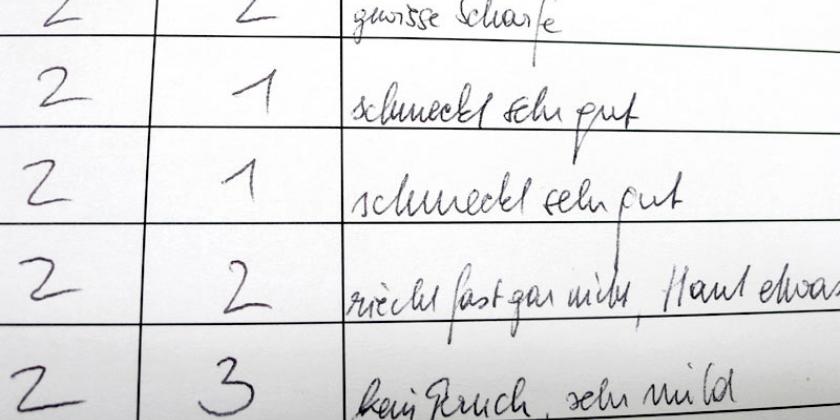 2 2 gewisse Schärfe
2 1 schmeckt sehr gut
2 1 schmeckt sehr gut
2 2 riecht fast gar nicht, Haut etwas
2 3 kein Geruch, sehr mild